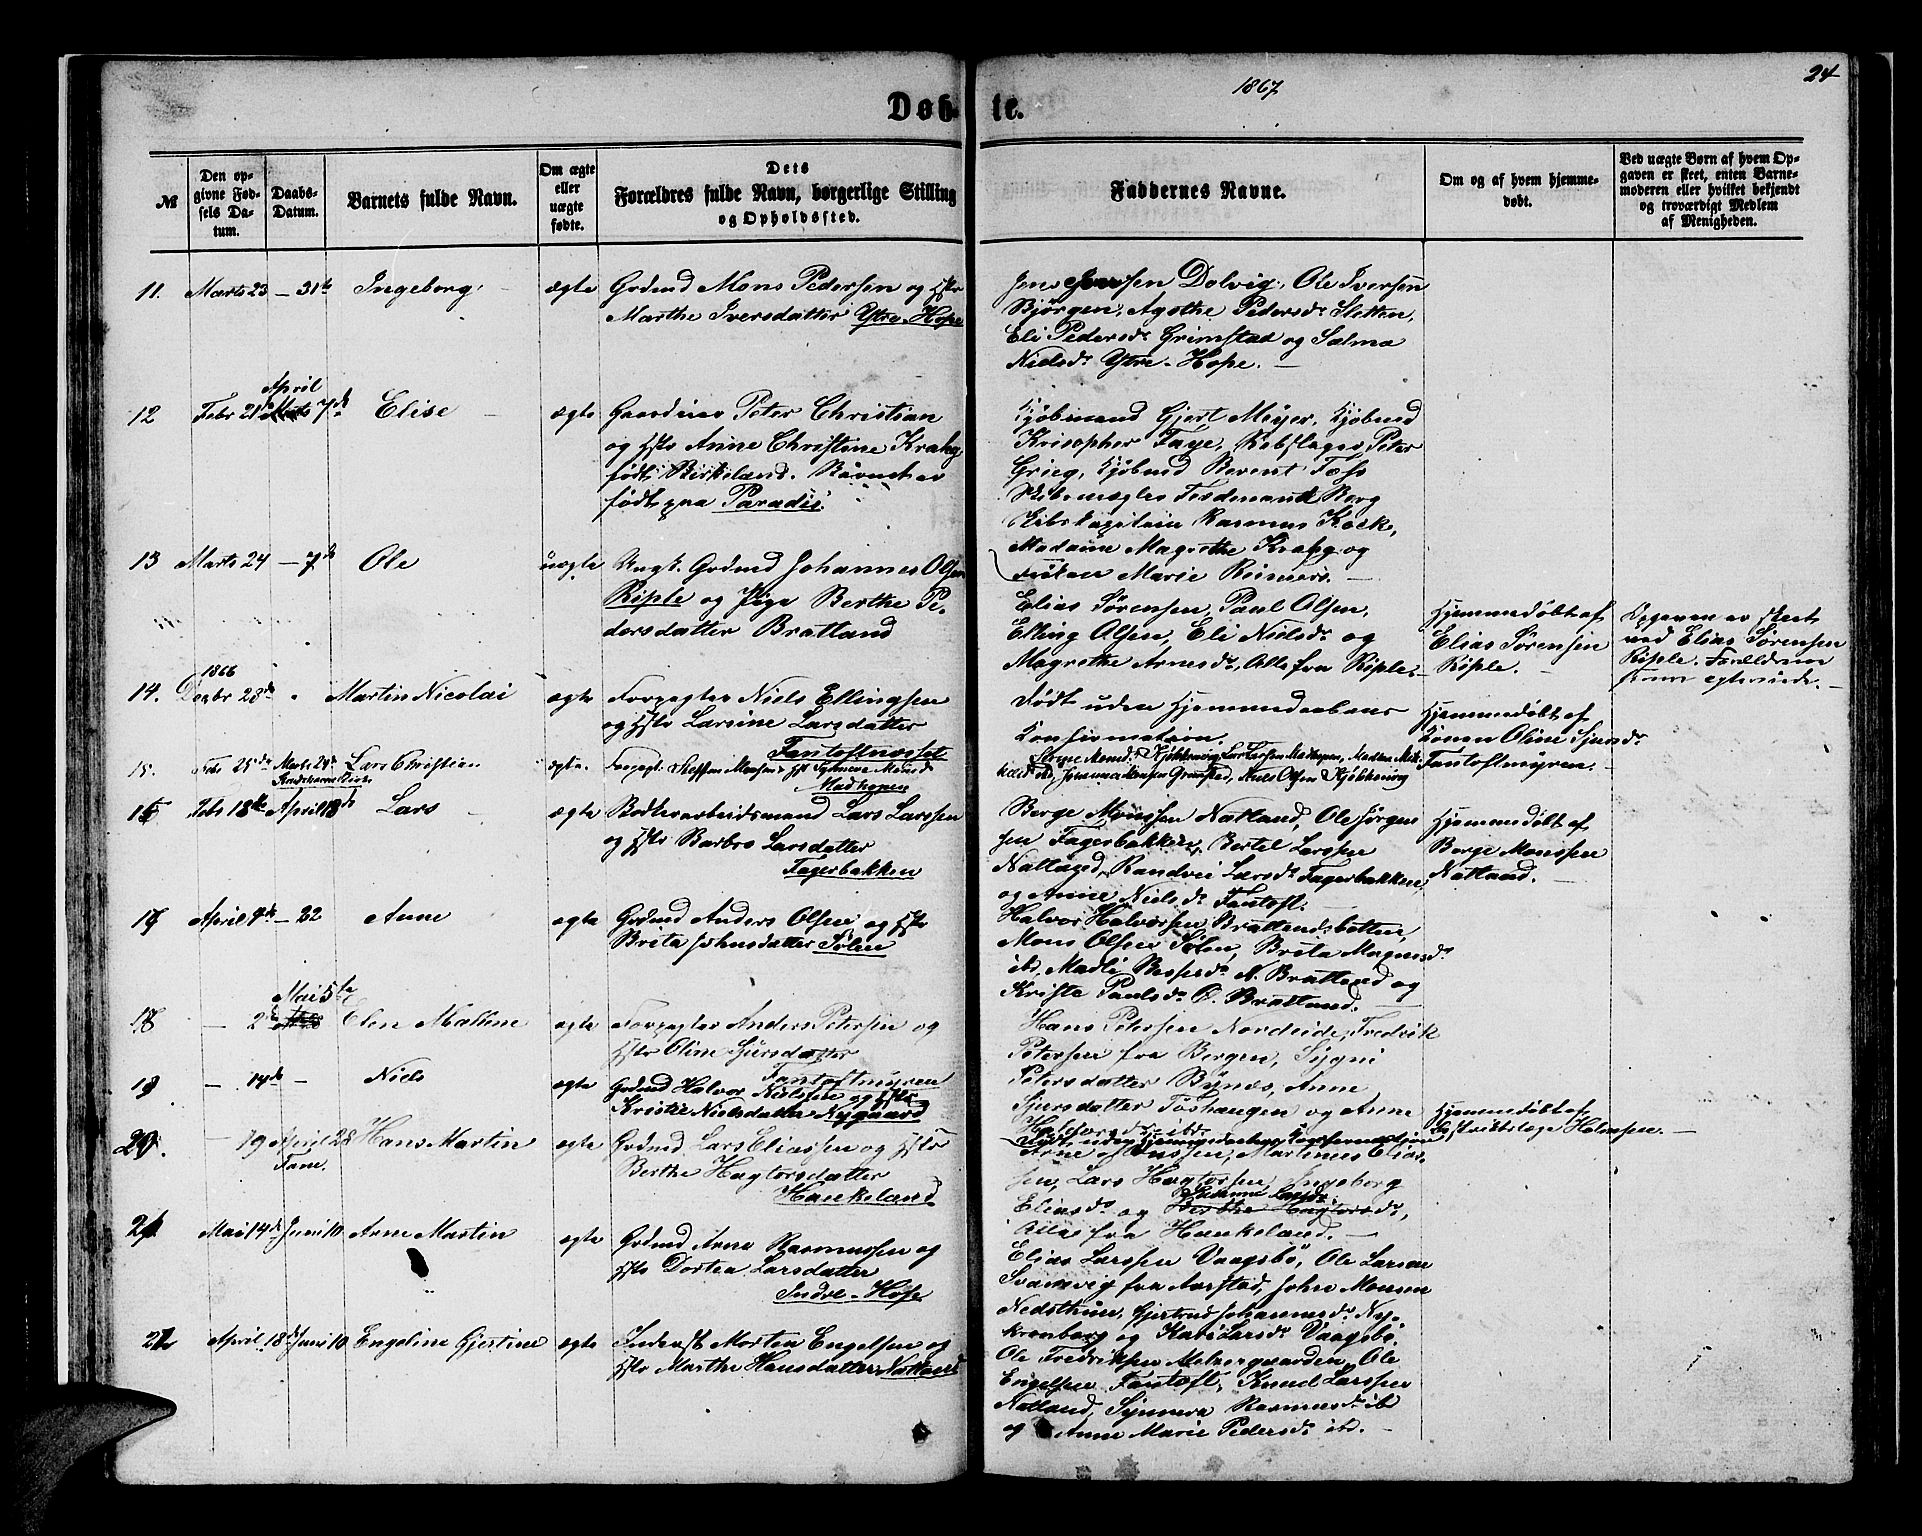 1867
24
Døb-
te.
№
Den op-
givne Fød-
sels Da-
tum.
Daabs-
Datum.
Barnets fulde Navn.
Om ægte
eller
uægte
fødte.
Dets
Forældres fulde Navn, borgerlige Stilling
og Opholdssted.
Faddernes Navne.
Om og af hvem hjemme-
døbt.
Ved uægte Børn af hvem Op-
gaven er skeet, enten Barne-
moderen eller hvilket bekjendt
og troværdigt Medlem
af Menigheden.
11. Marts 23 — 31te Ingeborg ægte
Grdmd Mons Pedersen og Hstr
Marthe Iversdatter Ytre-Hope
Jens Jensen Dolvig, Ole Iversen
Bjørgen, Agethe Pedersdr Sletten,
Eli Pedersdr Grimstad og Salma
Nielsdr Ytre-Hope. —
12 Febr 21de April 7de Elise — ægte
Gaardmd Peter Christian
og Hstr Anne Christine Krahg
født Birkeland. Barnet er
født paa Paradis.
Kjøbmand Gjert Meyer, Kjøbmd
Krisopher Faye, Rebslager Peter
Grieg, Kjøbmd Berent Fæhs
Skibsmægler Ferdinand Berg
Skibskapitain Rasmus Kock,
Madame Magrethe Krahg og
Frøken Marie Reimers. —
13 Marts 24 — 7de Ole uægte
Ungk. Grdmd Johannes Olsen
Riple og Pige Berthe Pe-
dersdatter Bratland
Elias Sørensen, Paul Olsen,
Elling Olsen, Eli Nielsdr og
Magrethe Arnesdr, Alle fra Riple.
Hjemmedøbt af
Elias Sørensen
Riple.
Opgaven er skeet
ved Elias Sørensen
Riple. Forældrene
ere egteviede. —
1866
14. Decbr 28de Martin Nicolai ægte
Forpagter Niels Ellingsen
og Hstr Larsine Larsdatter
Fantoftnæsset
Født uden Hjemmedaabens
Konfirmation.
Hjemmedøbt af
Konen Oline Sjursdr
Fantoftmyren. —
15. Febr 25de Marts 24de Lars Christian ægte.
Forpagt. Steffen Monsen Hst Synneve Monsd
Madhopen
16 Febr 18de April 18de Lars — ægte
Bødkerarbeidsmand Lars Larssen
og Hstr Barbro Larsdatter
Fagerbakken
Berge Monssen Natland, Ole Jørgen
sen Fagerbakken, Bertel Larssen
Natland, Randvei Larsdr Fagerbakken,
og Anne Nielsdr Fantoft. —
Hjemmedøbt af
Berge Monssen
Natland. —
17 April 7de — 22 Anne ægte
Grdmd Anders Olsen og Hstr
Brita Johnsdatter Sølen
Halvor Halvorsen Bratlandsbotten,
Mons Olsen Sølen, Brita Magnesdr
ibd, Madli Bessesdr N. Bratland og
Kriste Paulsdr Ø. Bratland.
Mai 5te
18 — 2de Elen Malline ægte
Forpagter Anders Petersen og
Hstr Oline Sjursdatter
Fantoftmyren
Hans Petersen Nordeide, Fredrik
Petersen fra Bergen, Sygni
Petersdatter Bynes, Anne
Sjursdatter Toshaugen og Anne
Halvorsdr ibd.
19 — 14de — Niels ægte
Grdmd Halvor Nielsen og Hstr
Kristie Nielsdatter Nygaard
Født uden Hjemmedaabens Konfirmation
Hjemmedøbt af
Distriktslæge Holmsen. —
20. — 19 April 28 Hans Martin ægte
Fane.
Grdmd Lars Eliassen og Hstr
Berthe Hagtorsdatter
Haukeland
Arne Hanssen, Martines Elias-
sen, Lars Hagtorsen, Ingeborg
Eliasdr og Berthe Hagtorsdr,
Alle fra Haukeland. —
21 Mai 14de Juni 10 Arne Martin ægte
Grdmd Arne Rasmussen og
Hstr Dortea Larsdatter
Indre-Hope
Elias Larssen Vaagsbø, Ole Larsen
Svanevig fra Aarstad, John Monsen
Nedsthuun, Gjertrud Johannesdr Ny-
kronborg og Kari Larsdr Vaagsbø.
22 April 18de Juni 10 Engeline Gjertine ægte
Inderst Morten Engelsen og
Hstr Marthe Hansdatter Natland
Ole Fredriksen Melhergaarden, Ole
Engelsen Fantoft, Knud Larssen
Natland, Synneva Rasmusdr ib
og Anne Marie Pedersdr ibd. —